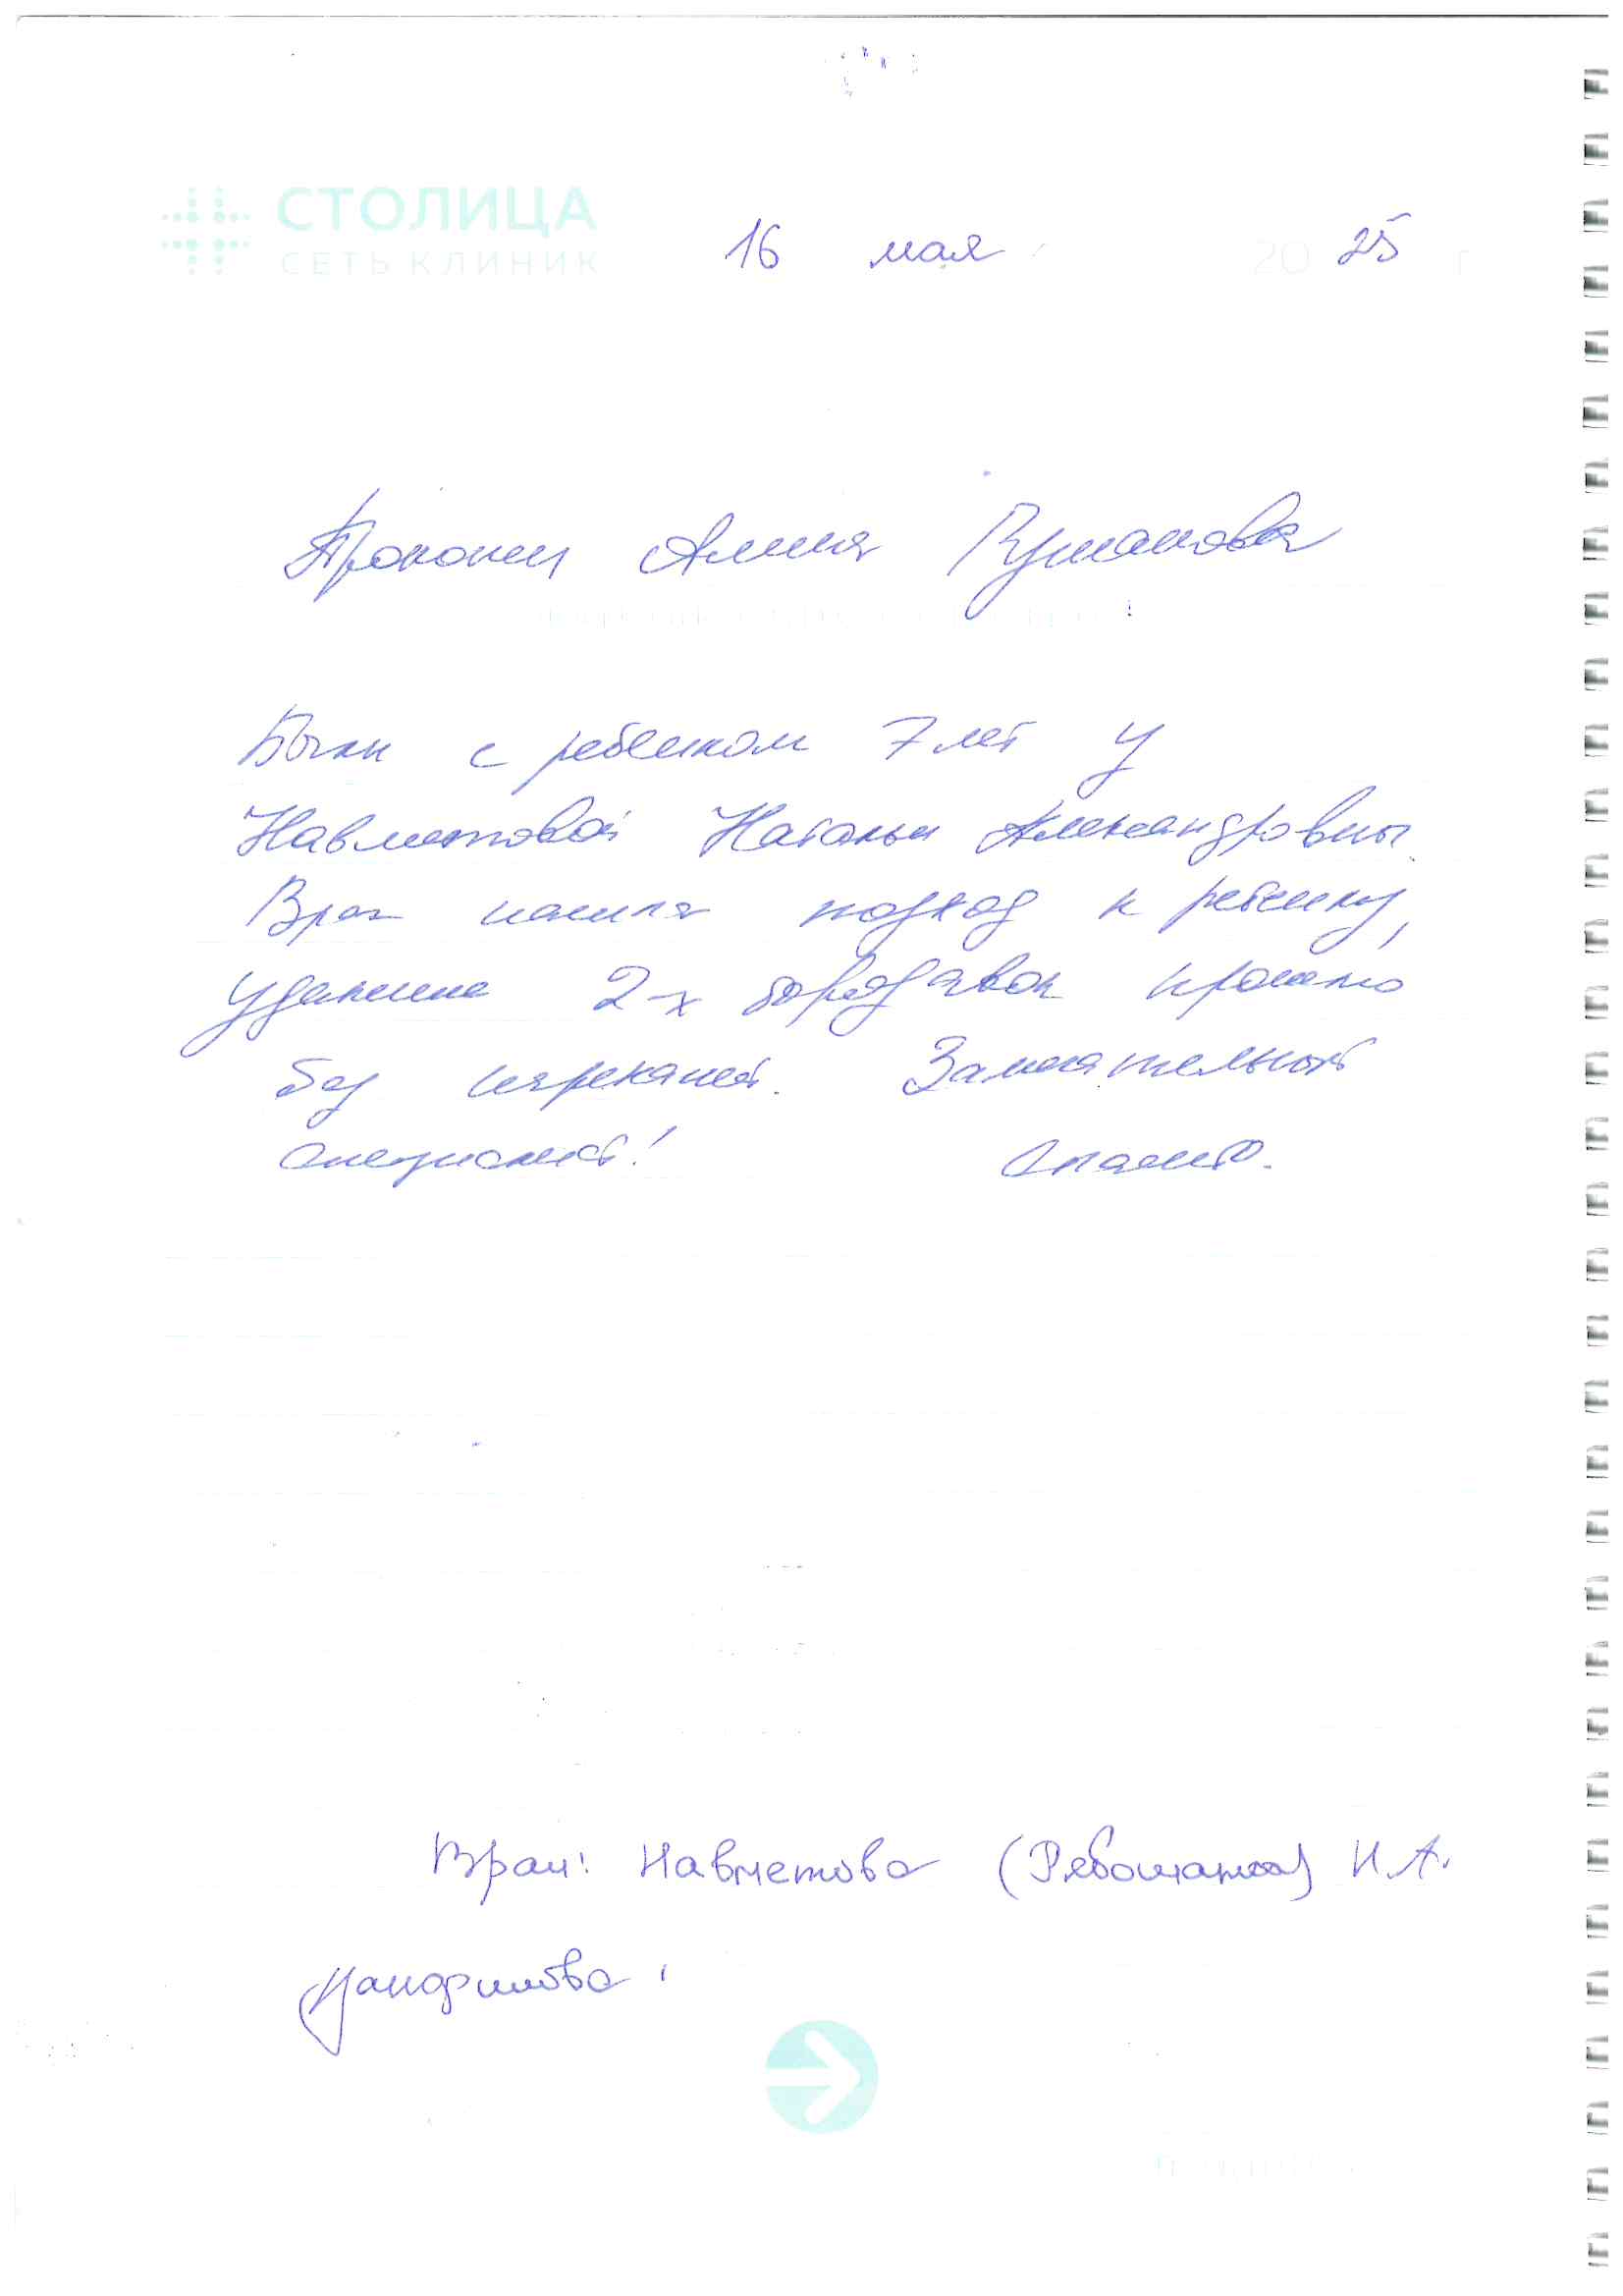 СТОЛИЦА
СЕТЬ КЛИНИК
16 мая 2025 г
Алина
Были с ребенком 7 лет у
Навметовой Натальи Александровны.
Врач нашла подход к ребенку,
удаление 2-х бородавок прошло
без нареканий. Замечательный
специалист! Спасибо.
Врач: Навметова Н.А.